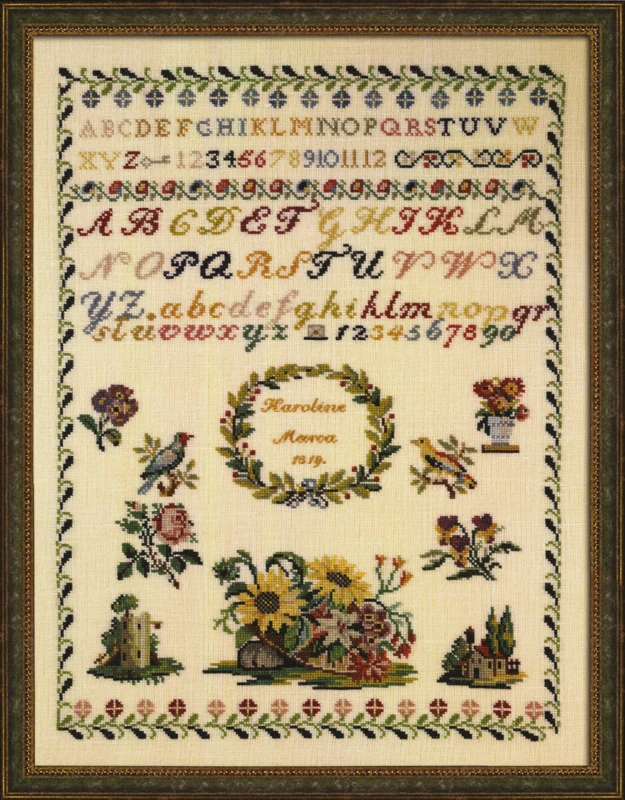 ABCDEFGHIKLMNOPQRSTUVW
XYZ 123456789101112
ABCDEFGHIKLM
NOPQRSTUVWX
YZ.abcdefghiklmnopqr
stuvwxyz 1234567890
Karoline
Marca
1819.